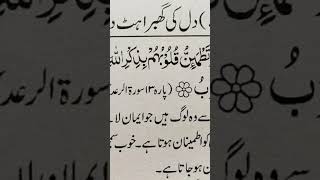 ) دل کی گھبراہٹ د
تَطْمَئِنُّ قُلُوْبُهُمْ بِذِكْرِ اللّٰهِ
بُ ۞ (پارہ ۱۳ سورۃ الرعد
سے وہ لوگ ہیں جو ایمان لا
کو اطمینان ہوتا ہے۔ خوب
ن ہو جاتا ہے۔